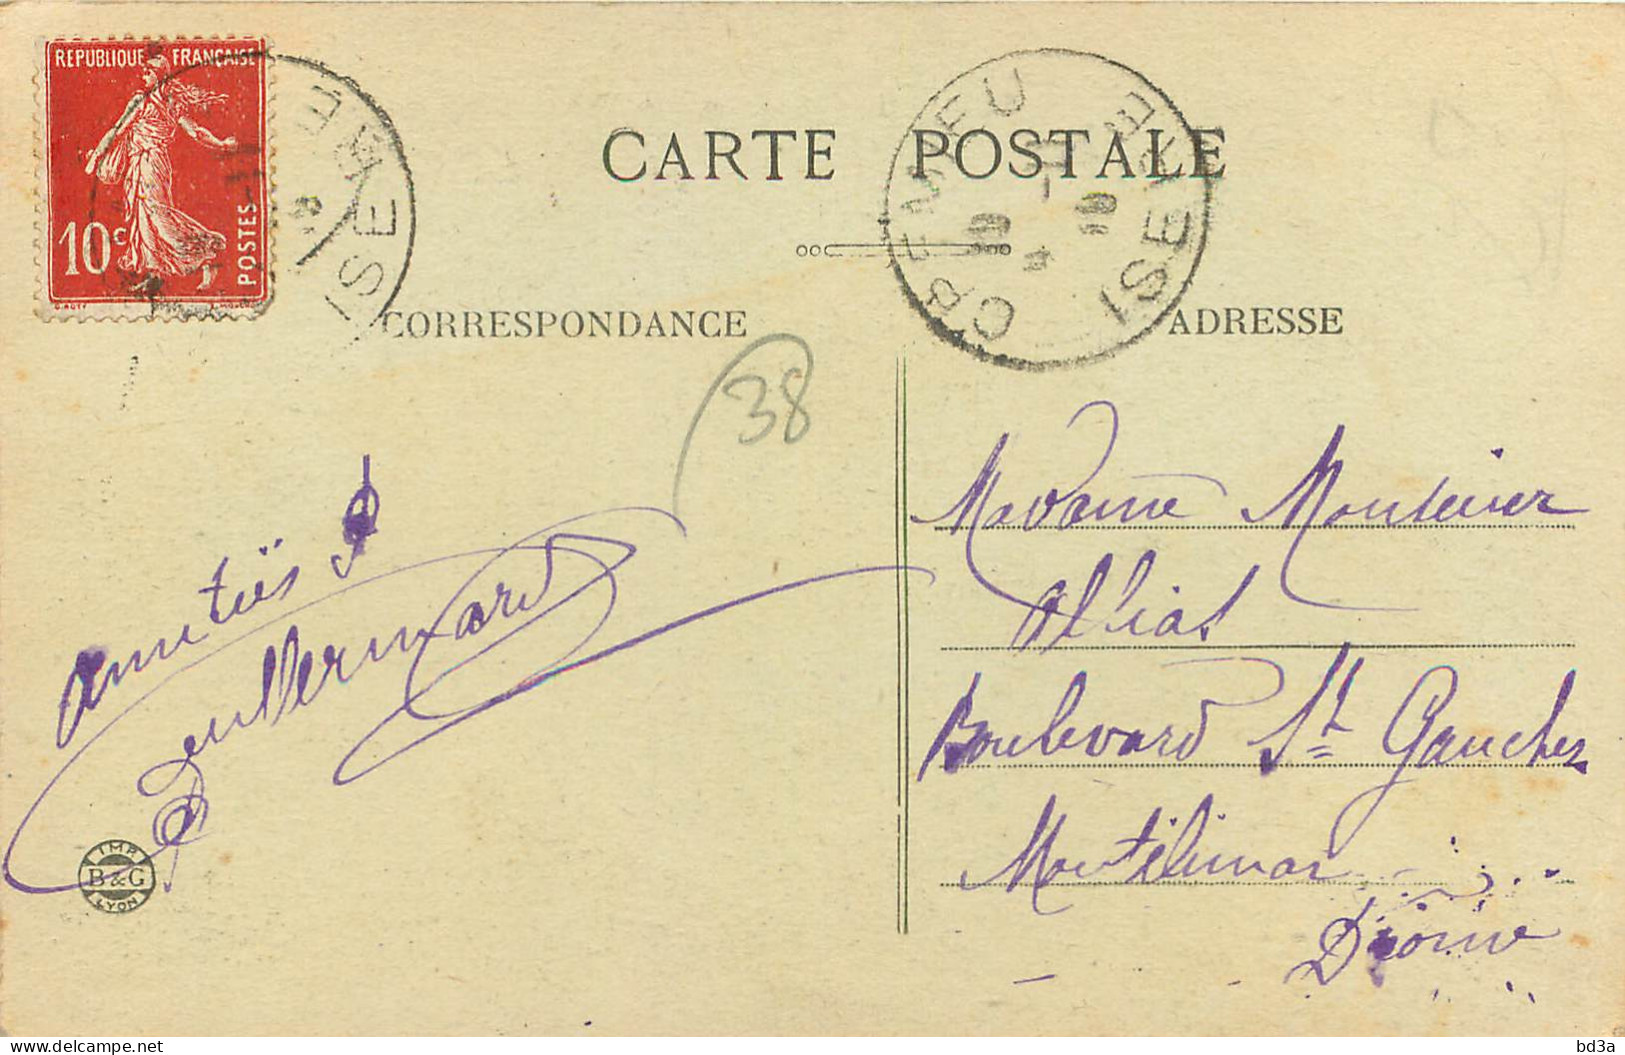 REPUBLIQUE FRANÇAISE
10c
POSTES
ISERE
CARTE POSTALE
CREMIEU
ISERE
CORRESPONDANCE
ADRESSE
38
amitiés
Madame
Boulevard St Gaucher
Montélimar
Drôme
IMP.
B&G
LYON
delcampe.net
bd3a